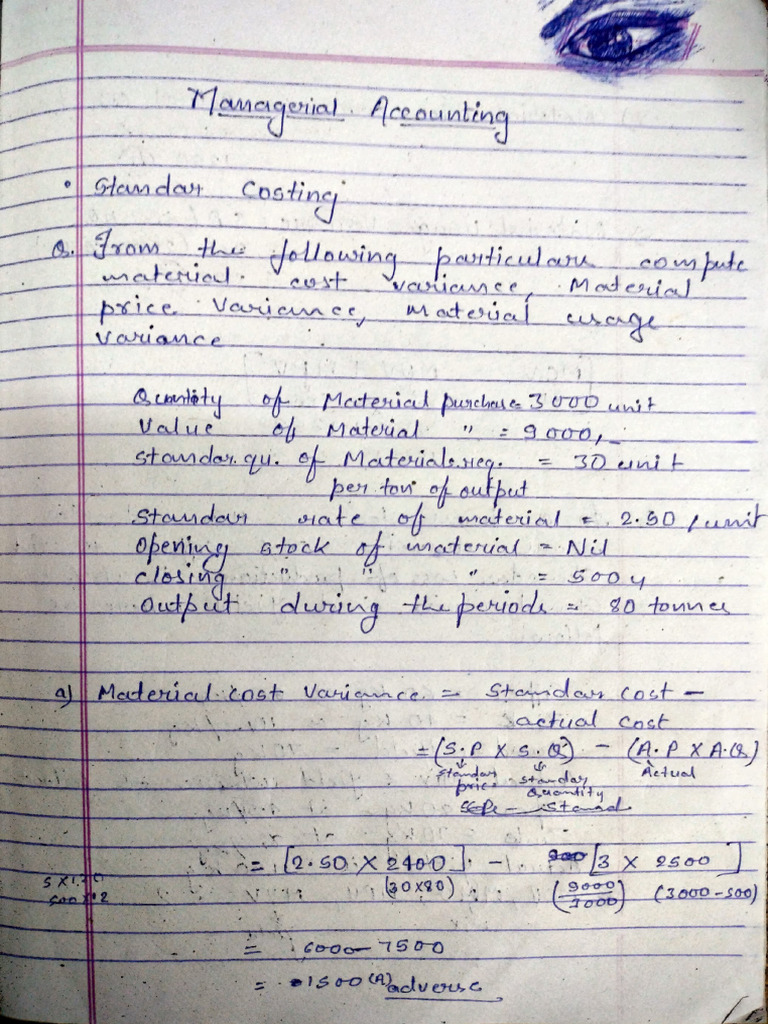 Managerial Accounting
• Standar Costing
Q. From the following particulars compute
material cost variance, Material
price variance, material usage
variance
Quantity of Material purchase = 3000 unit
Value of Material " = 9000/-
Standar.qu. of Materials.req. = 30 unit
per ton of output
Standar rate of material = 2.50 / unit
Opening stock of material = Nil
closing " " " = 500 u
Output during the periods = 80 tonnes
a) Material cost Variance = Standar cost -
actual cost
= (S.P X S.Q) - (A.P X A.Q)
standar standar Actual
price Quantity
= [2.50 X 2400] - [3 X 2500]
(30x80) (9000/3000) (3000-500)
= 6000 - 7500
= -1500 (A) adverse